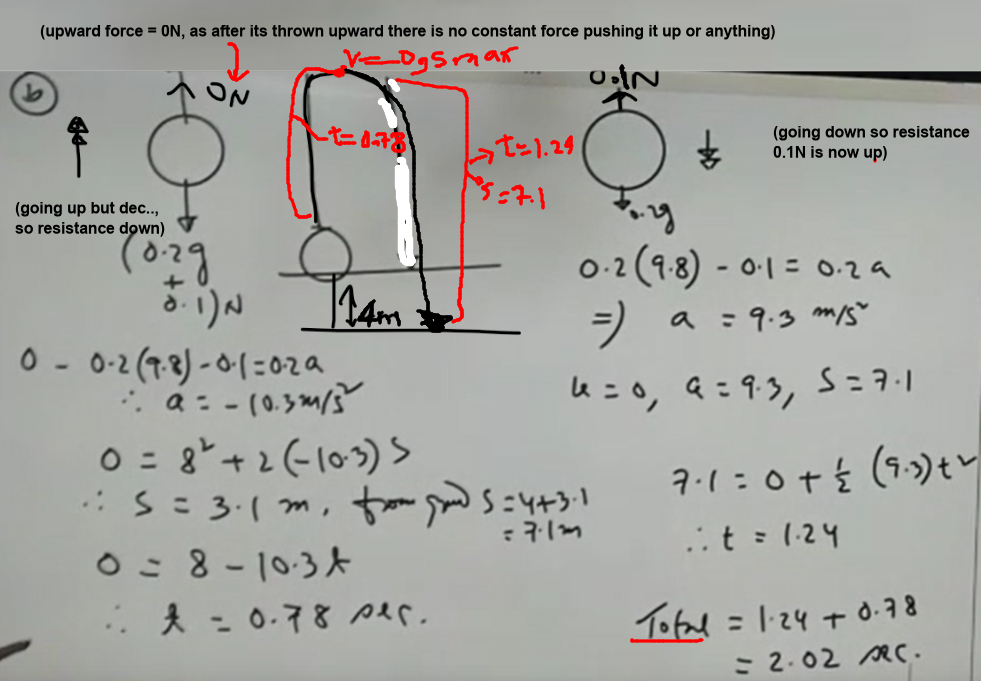 (upward force = 0N, as after its thrown upward there is no constant force pushing it up or anything)
V = 0 g s max
b
0N
0.1N
t = 0.78
t = 1.24
s = 7.1
(going down so resistance
0.1N is now up)
(going up but dec..,
so resistance down)
(0.2g
+
0.1)N
0.2g
4m
0 - 0.2(9.8) - 0.1 = 0.2a
∴ a = -10.3 m/s²
0 = 8² + 2(-10.3)S
∴ S = 3.1 m, from ground S = 4+3.1
= 7.1m
0 = 8 - 10.3t
∴ t = 0.78 sec.
0.2(9.8) - 0.1 = 0.2a
=) a = 9.3 m/s²
u = 0, a = 9.3, S = 7.1
7.1 = 0 + ½ (9.3)t²
∴ t = 1.24
Total = 1.24 + 0.78
= 2.02 sec.